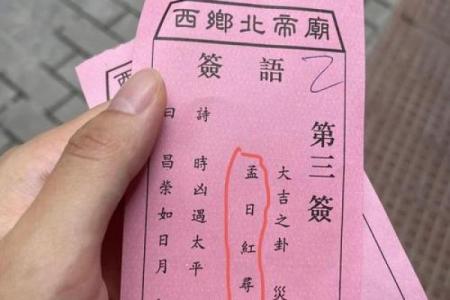 西鄉北帝廟
簽語
第三簽
大吉之卦 災
孟日紅尋
詩 時凶遇太平
曰 昌榮如日月
西